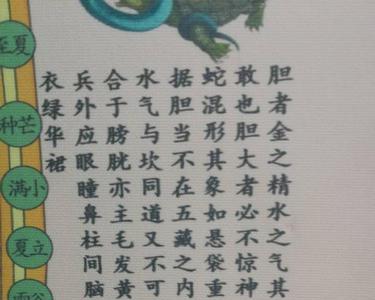 胆者金之精水之气其
敢也胆大者必不惊神
蛇混形其象如悬袋重
据胆当不在五藏之内
水气与坎同道又不可
合于膀胱亦主毛发黄
兵外应眼瞳鼻柱间脑
衣绿华裙
夏至
芒种
小满
立夏
谷雨